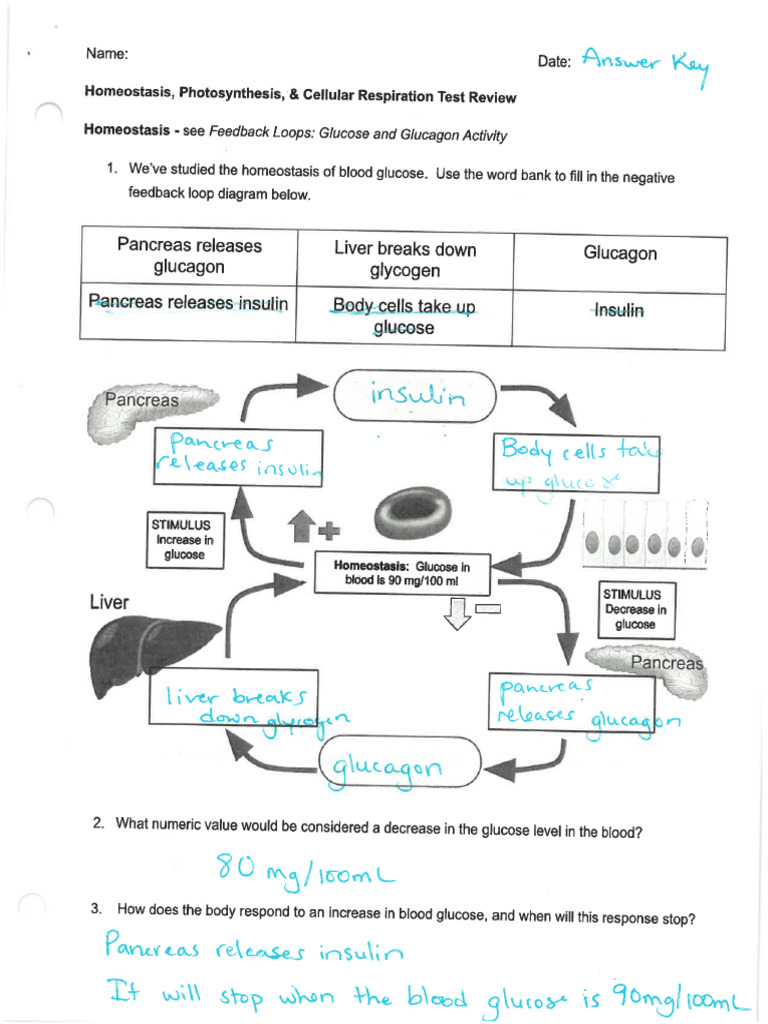 Name:
Date: Answer Key
Homeostasis, Photosynthesis, & Cellular Respiration Test Review
Homeostasis - see Feedback Loops: Glucose and Glucagon Activity
1. We've studied the homeostasis of blood glucose. Use the word bank to fill in the negative
feedback loop diagram below.
Pancreas releases
glucagon
Liver breaks down
glycogen
Glucagon
Pancreas releases insulin
Body cells take up
glucose
Insulin
Pancreas
insulin
Pancreas
releases insulin
Body cells take
up glucose
STIMULUS
Increase in
glucose
Homeostasis: Glucose in
blood is 90 mg/100 ml
STIMULUS
Decrease in
glucose
Liver
Pancreas
liver breaks
down glycogen
pancreas
releases glucagon
glucagon
2. What numeric value would be considered a decrease in the glucose level in the blood?
80 mg/100mL
3. How does the body respond to an increase in blood glucose, and when will this response stop?
Pancreas releases insulin
It will stop when the blood glucose is 90mg/100mL